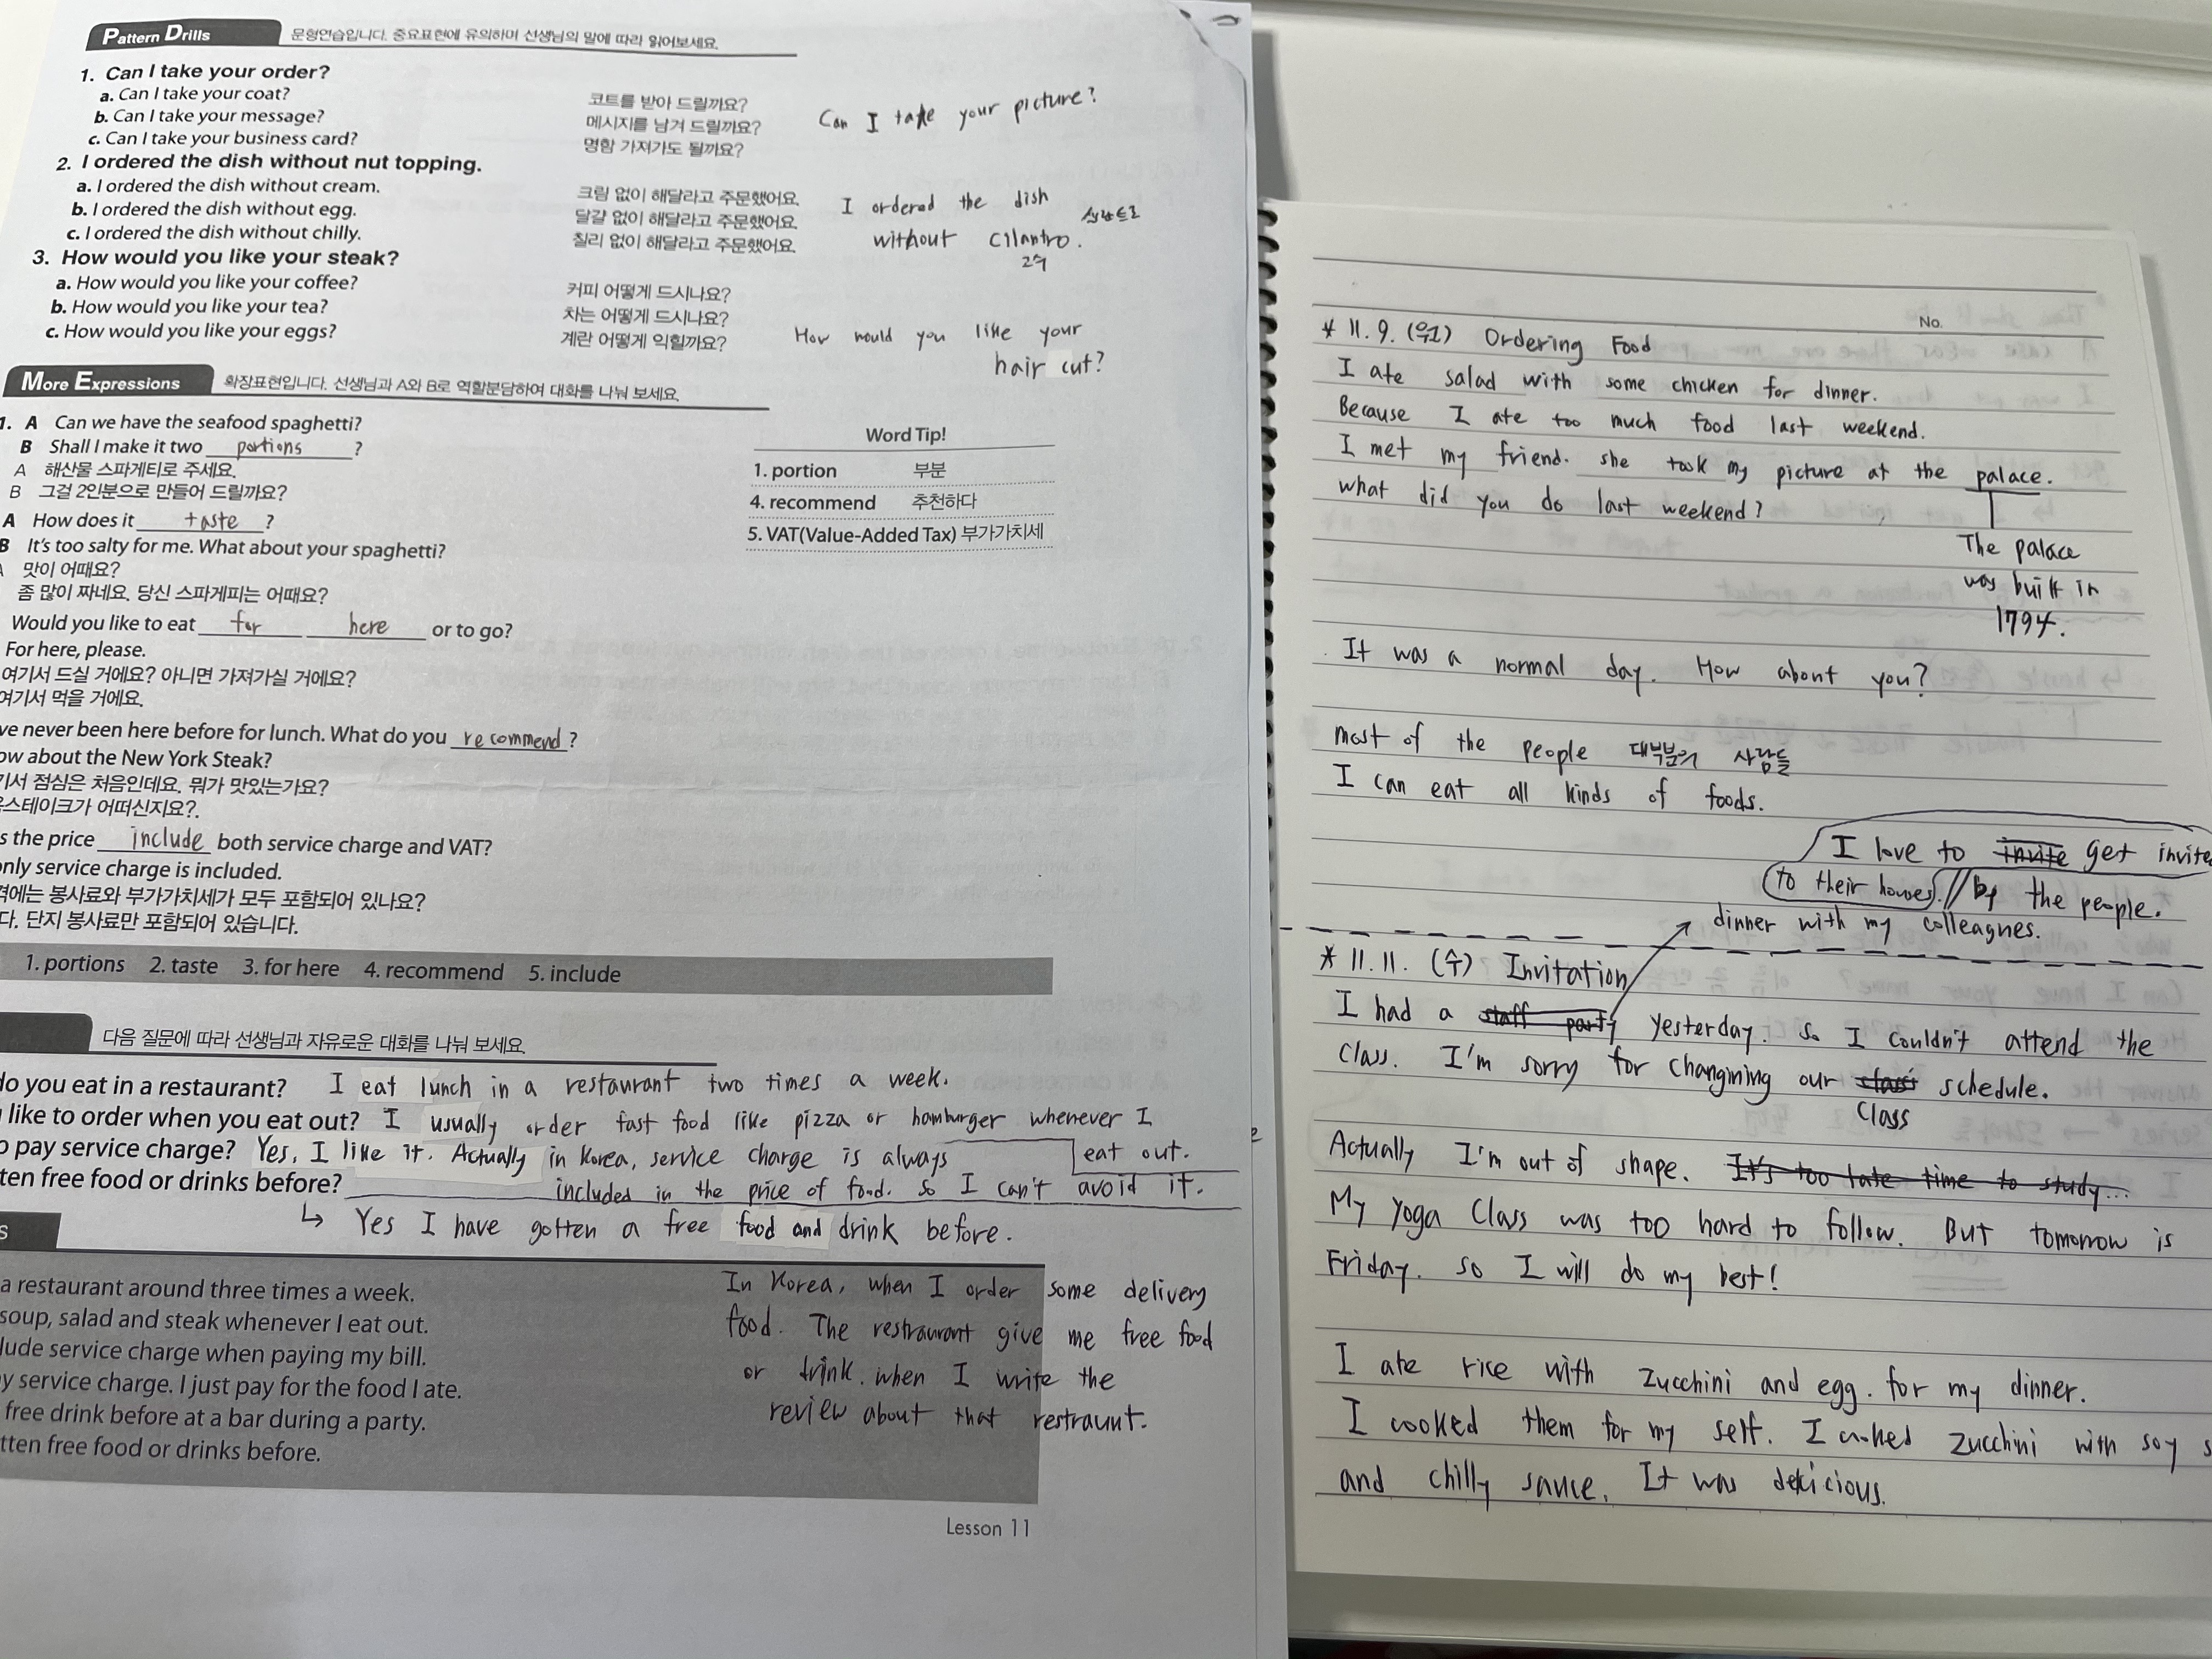 Pattern Drills 문형연습입니다. 중요표현에 유의하며 선생님의 말에 따라 읽어보세요.
1. Can I take your order?
a. Can I take your coat? 코트를 받아 드릴까요?
b. Can I take your message? 메시지를 남겨 드릴까요?
c. Can I take your business card? 명함 가져가도 될까요?
Can I take your picture?
2. I ordered the dish without nut topping.
a. I ordered the dish without cream. 크림 없이 해달라고 주문했어요.
b. I ordered the dish without egg. 달걀 없이 해달라고 주문했어요.
c. I ordered the dish without chilly. 칠리 없이 해달라고 주문했어요.
I ordered the dish
without cilantro.
고수
3. How would you like your steak?
a. How would you like your coffee? 커피 어떻게 드시나요?
b. How would you like your tea? 차는 어떻게 드시나요?
c. How would you like your eggs? 계란 어떻게 익힐까요?
How would you like your
hair cut?
More Expressions 확장표현입니다. 선생님과 A와 B로 역할분담하여 대화를 나눠 보세요.
1. A Can we have the seafood spaghetti?
B Shall I make it two portions ?
A 해산물 스파게티로 주세요.
B 그걸 2인분으로 만들어 드릴까요?
A How does it taste ?
B It's too salty for me. What about your spaghetti?
맛이 어때요?
좀 많이 짜네요. 당신 스파게피는 어때요?
Would you like to eat for here or to go?
For here, please.
여기서 드실 거에요? 아니면 가져가실 거에요?
여기서 먹을 거에요.
ve never been here before for lunch. What do you recommend ?
ow about the New York Steak?
기서 점심은 처음인데요. 뭐가 맛있는가요?
스테이크가 어떠신지요?.
s the price include both service charge and VAT?
only service charge is included.
격에는 봉사료와 부가가치세가 모두 포함되어 있나요?
다. 단지 봉사료만 포함되어 있습니다.
Word Tip!
1. portion 부분
4. recommend 추천하다
5. VAT(Value-Added Tax) 부가가치세
1. portions 2. taste 3. for here 4. recommend 5. include
다음 질문에 따라 선생님과 자유로운 대화를 나눠 보세요.
do you eat in a restaurant? I eat lunch in a restaurant two times a week.
like to order when you eat out? I usually order fast food like pizza or hamburger whenever I
eat out.
o pay service charge? Yes, I like it. Actually in Korea, service charge is always
included in the price of food. so I can't avoid it.
ten free food or drinks before?
↳ Yes I have gotten a free food and drink before.
s
a restaurant around three times a week.
soup, salad and steak whenever I eat out.
lude service charge when paying my bill.
y service charge. I just pay for the food I ate.
free drink before at a bar during a party.
tten free food or drinks before.
In Korea, when I order some delivery
food. The restraurant give me free food
or drink. when I write the
review about that restraunt.
Lesson 11
No.
* 11. 9. (월) Ordering Food
I ate salad with some chicken for dinner.
Because I ate too much food last weekend.
I met my friend. she took my picture at the palace.
what did you do last weekend?
The palace
was built in
1794.
It was a normal day. How about you?
most of the people 대부분의 사람들
I can eat all kinds of foods.
I love to invite get invite
to their houses. // by the people.
dinner with my colleagnes.
* 11. 11. (수) Invitation
I had a staff party yesterday. so I couldn't attend the
class. I'm sorry for changining our class schedule.
Class
Actually I'm out of shape. It's too late time to study...
My yoga class was too hard to follow. But tomorrow is
Friday. so I will do my best!
I ate rice with zucchini and egg. for my dinner.
I cooked them for my self. I cooked zucchini with soy s
and chilly sauce. It was delicious.